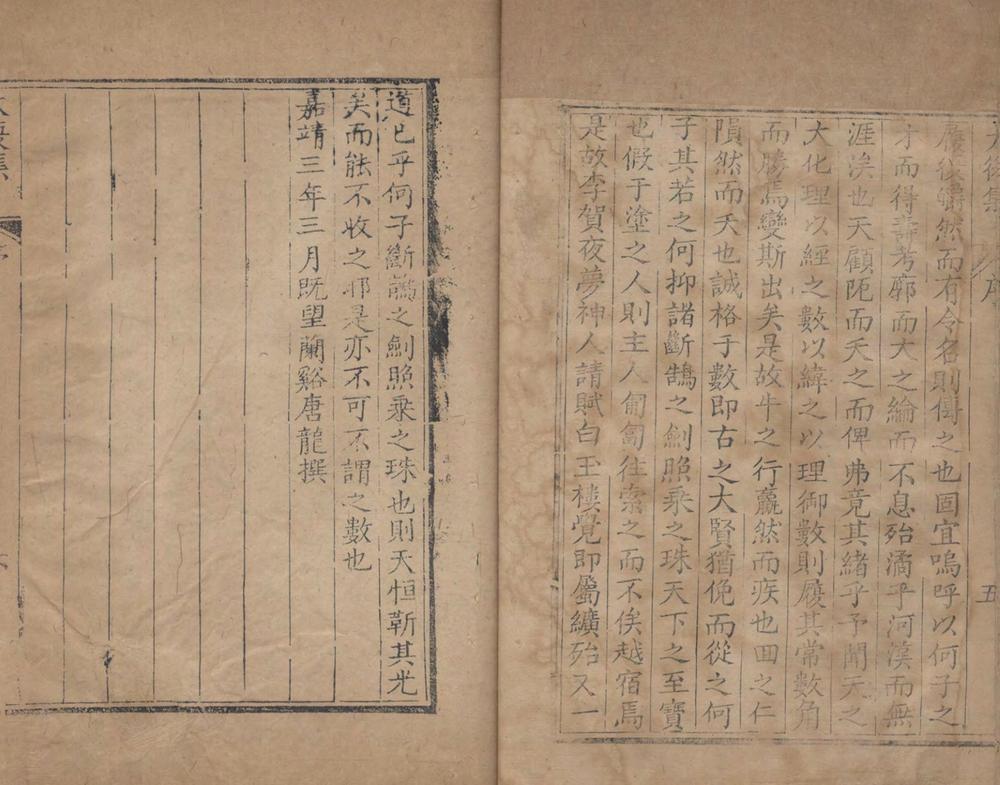 大復集
序
五
履後皭然而有令名則傳之也固宜嗚呼以何子之
才而得壽考廓而大之綸而不息殆潏乎河漢而無
涯涘也天顧阨而夭之而俾弗竟其緒乎予聞天之
大化理以經之數以緯之以理御數則履其常數角
而勝焉變斯出矣是故牛之行羸然而疾也回之仁
隕然而夭也誠格于數即古之大賢猶俛而從之何
子其若之何抑諸斷鵠之劍照乗之珠天下之至寶
也假于塗之人則主人匍匐往索之而不俟越宿焉
是故李賀夜夢神人請賦白玉樓覺即屬纊殆又一
道已乎何子斷鵠之劍照乗之珠也則天恒靳其光
矣而能不收之邪是亦不可不謂之數也
嘉靖三年三月既望蘭谿唐龍撰